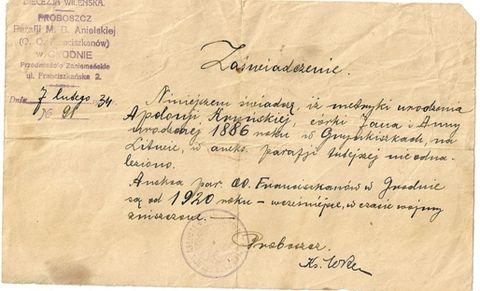 DIECEZJA WILEŃSKA
PROBOSZCZ
Parafji M. B. Anielskiej
(O. O. Franciszkanów)
w GRODNIE
Przedmieście Zaniemeńskie
ul. Franciszkańska 2.
Dnia 7 lutego 34
№ 28
Zaświadczenie.
Niniejszem świadczę, iż metryki urodzenia
Apolonji córki Jana i Anny
urodzonej 1886 roku w na
Litwie, w parafji tutejszej nie odna-
leziono.
par. OO. Franciszkanów w Grodnie
są od 1920 roku – wcześniejsze, w czasie wojny
zniszczone. –
Proboszcz
Ks.